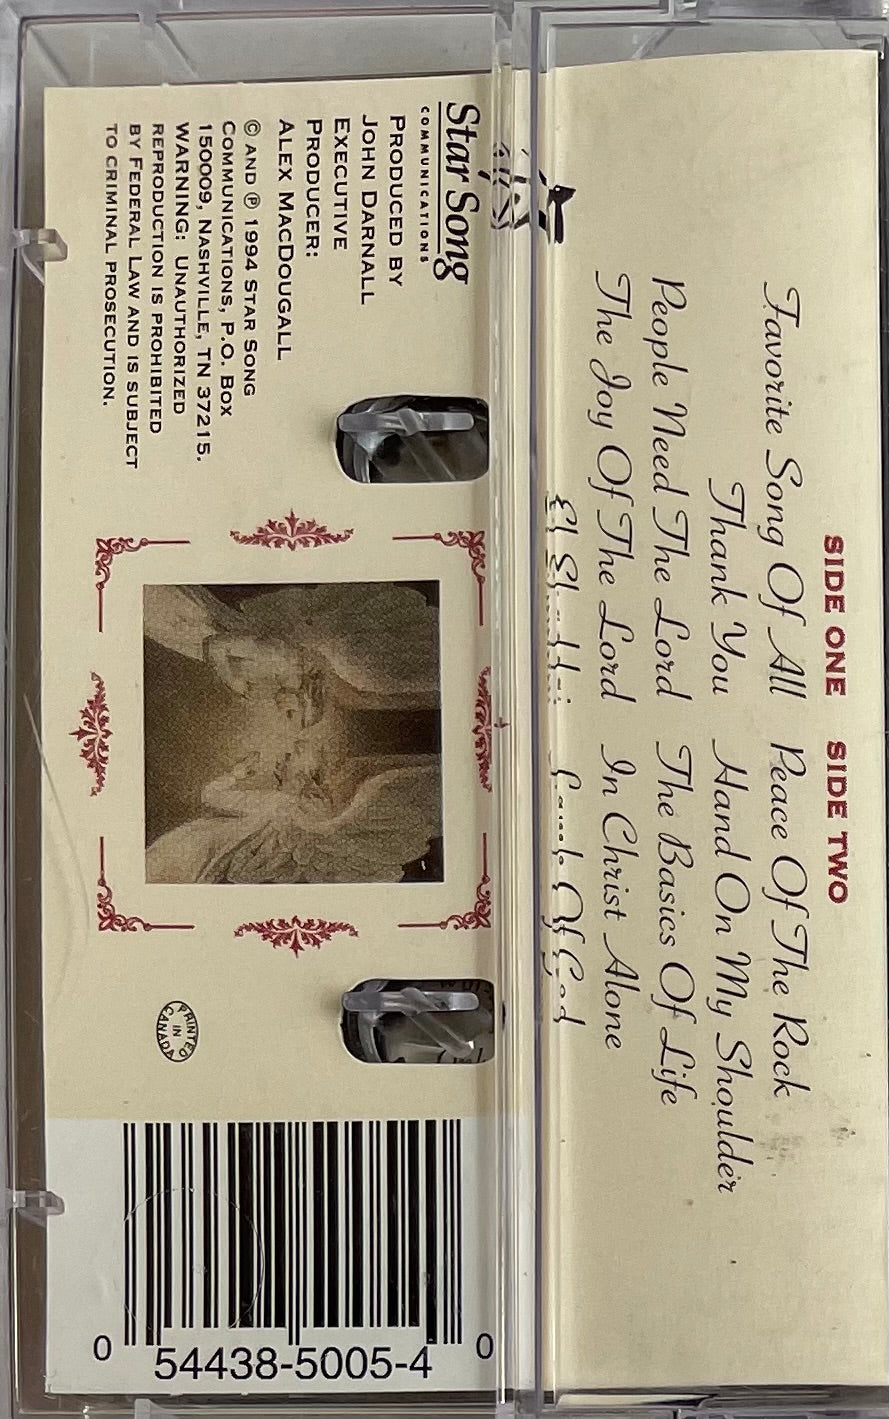 SIDE ONE
Favorite Song Of All
Thank You
People Need The Lord
The Joy Of The Lord
El Shaddai
SIDE TWO
Peace Of The Rock
Hand On My Shoulder
The Basics Of Life
In Christ Alone
Lamb Of God
Star Song
COMMUNICATIONS
PRODUCED BY
JOHN DARNALL
EXECUTIVE
PRODUCER:
ALEX MACDOUGALL
© AND ℗ 1994 STAR SONG
COMMUNICATIONS, P.O. BOX
150009, NASHVILLE, TN 37215.
WARNING: UNAUTHORIZED
REPRODUCTION IS PROHIBITED
BY FEDERAL LAW AND IS SUBJECT
TO CRIMINAL PROSECUTION.
PRINTED
IN
CANADA
0 54438-5005-4 0